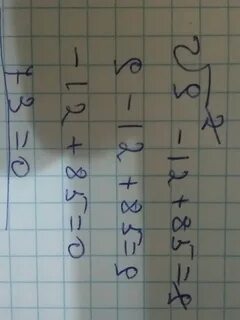 √9² - 12 + 85 = 9
9 - 12 + 85 = 9
-12 + 85 = 0
73 = 0